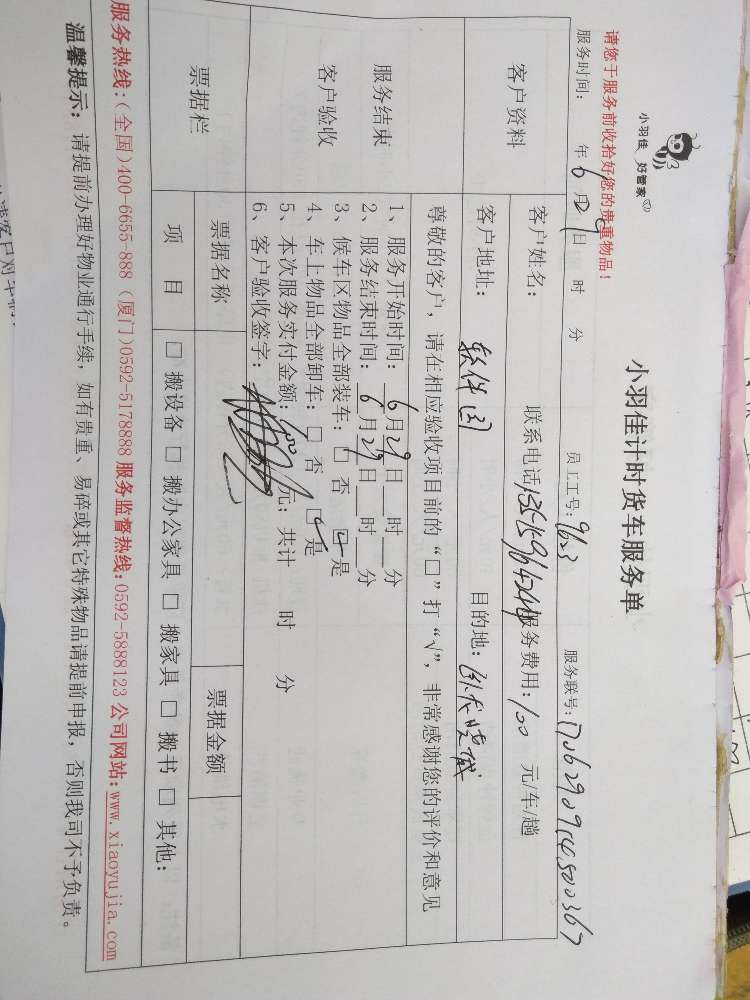 小羽佳 好管家
小羽佳计时货车服务单
请您于服务前收拾好您的贵重物品!
服务时间: 年 6 月 29 日 时 分 员工工号: 9623 服务联号:
客户资料 客户姓名: 联系电话 服务费用: 100 元/车/趟
客户地址: 软件园 目的地:
服务结束
客户验收
尊敬的客户,请在相应验收项目前的“□”打“√”,非常感谢您的评价和意见
1、服务开始时间: 6 月 29 日 时 分
2、服务结束时间: 6 月 29 日 时 分
3、候车区物品全部装车: □ 否 ☑ 是
4、车上物品全部卸车: □ 否 ☑ 是
5、本次服务实付金额: 元; 共计 时 分
6、客户验收签字:
票据栏 票据名称 票据金额
项 目 □ 搬设备 □ 搬办公家具 □ 搬家具 □ 搬书 □ 其他:
服务热线:(全国)400-6655-888 (厦门)0592-5178888 服务监督热线:0592-5888123 公司网站:www.xiaoyujia.com
温馨提示: 请提前办理好物业通行手续,如有贵重、易碎或其它特殊物品请提前申报,否则我司不予负责。